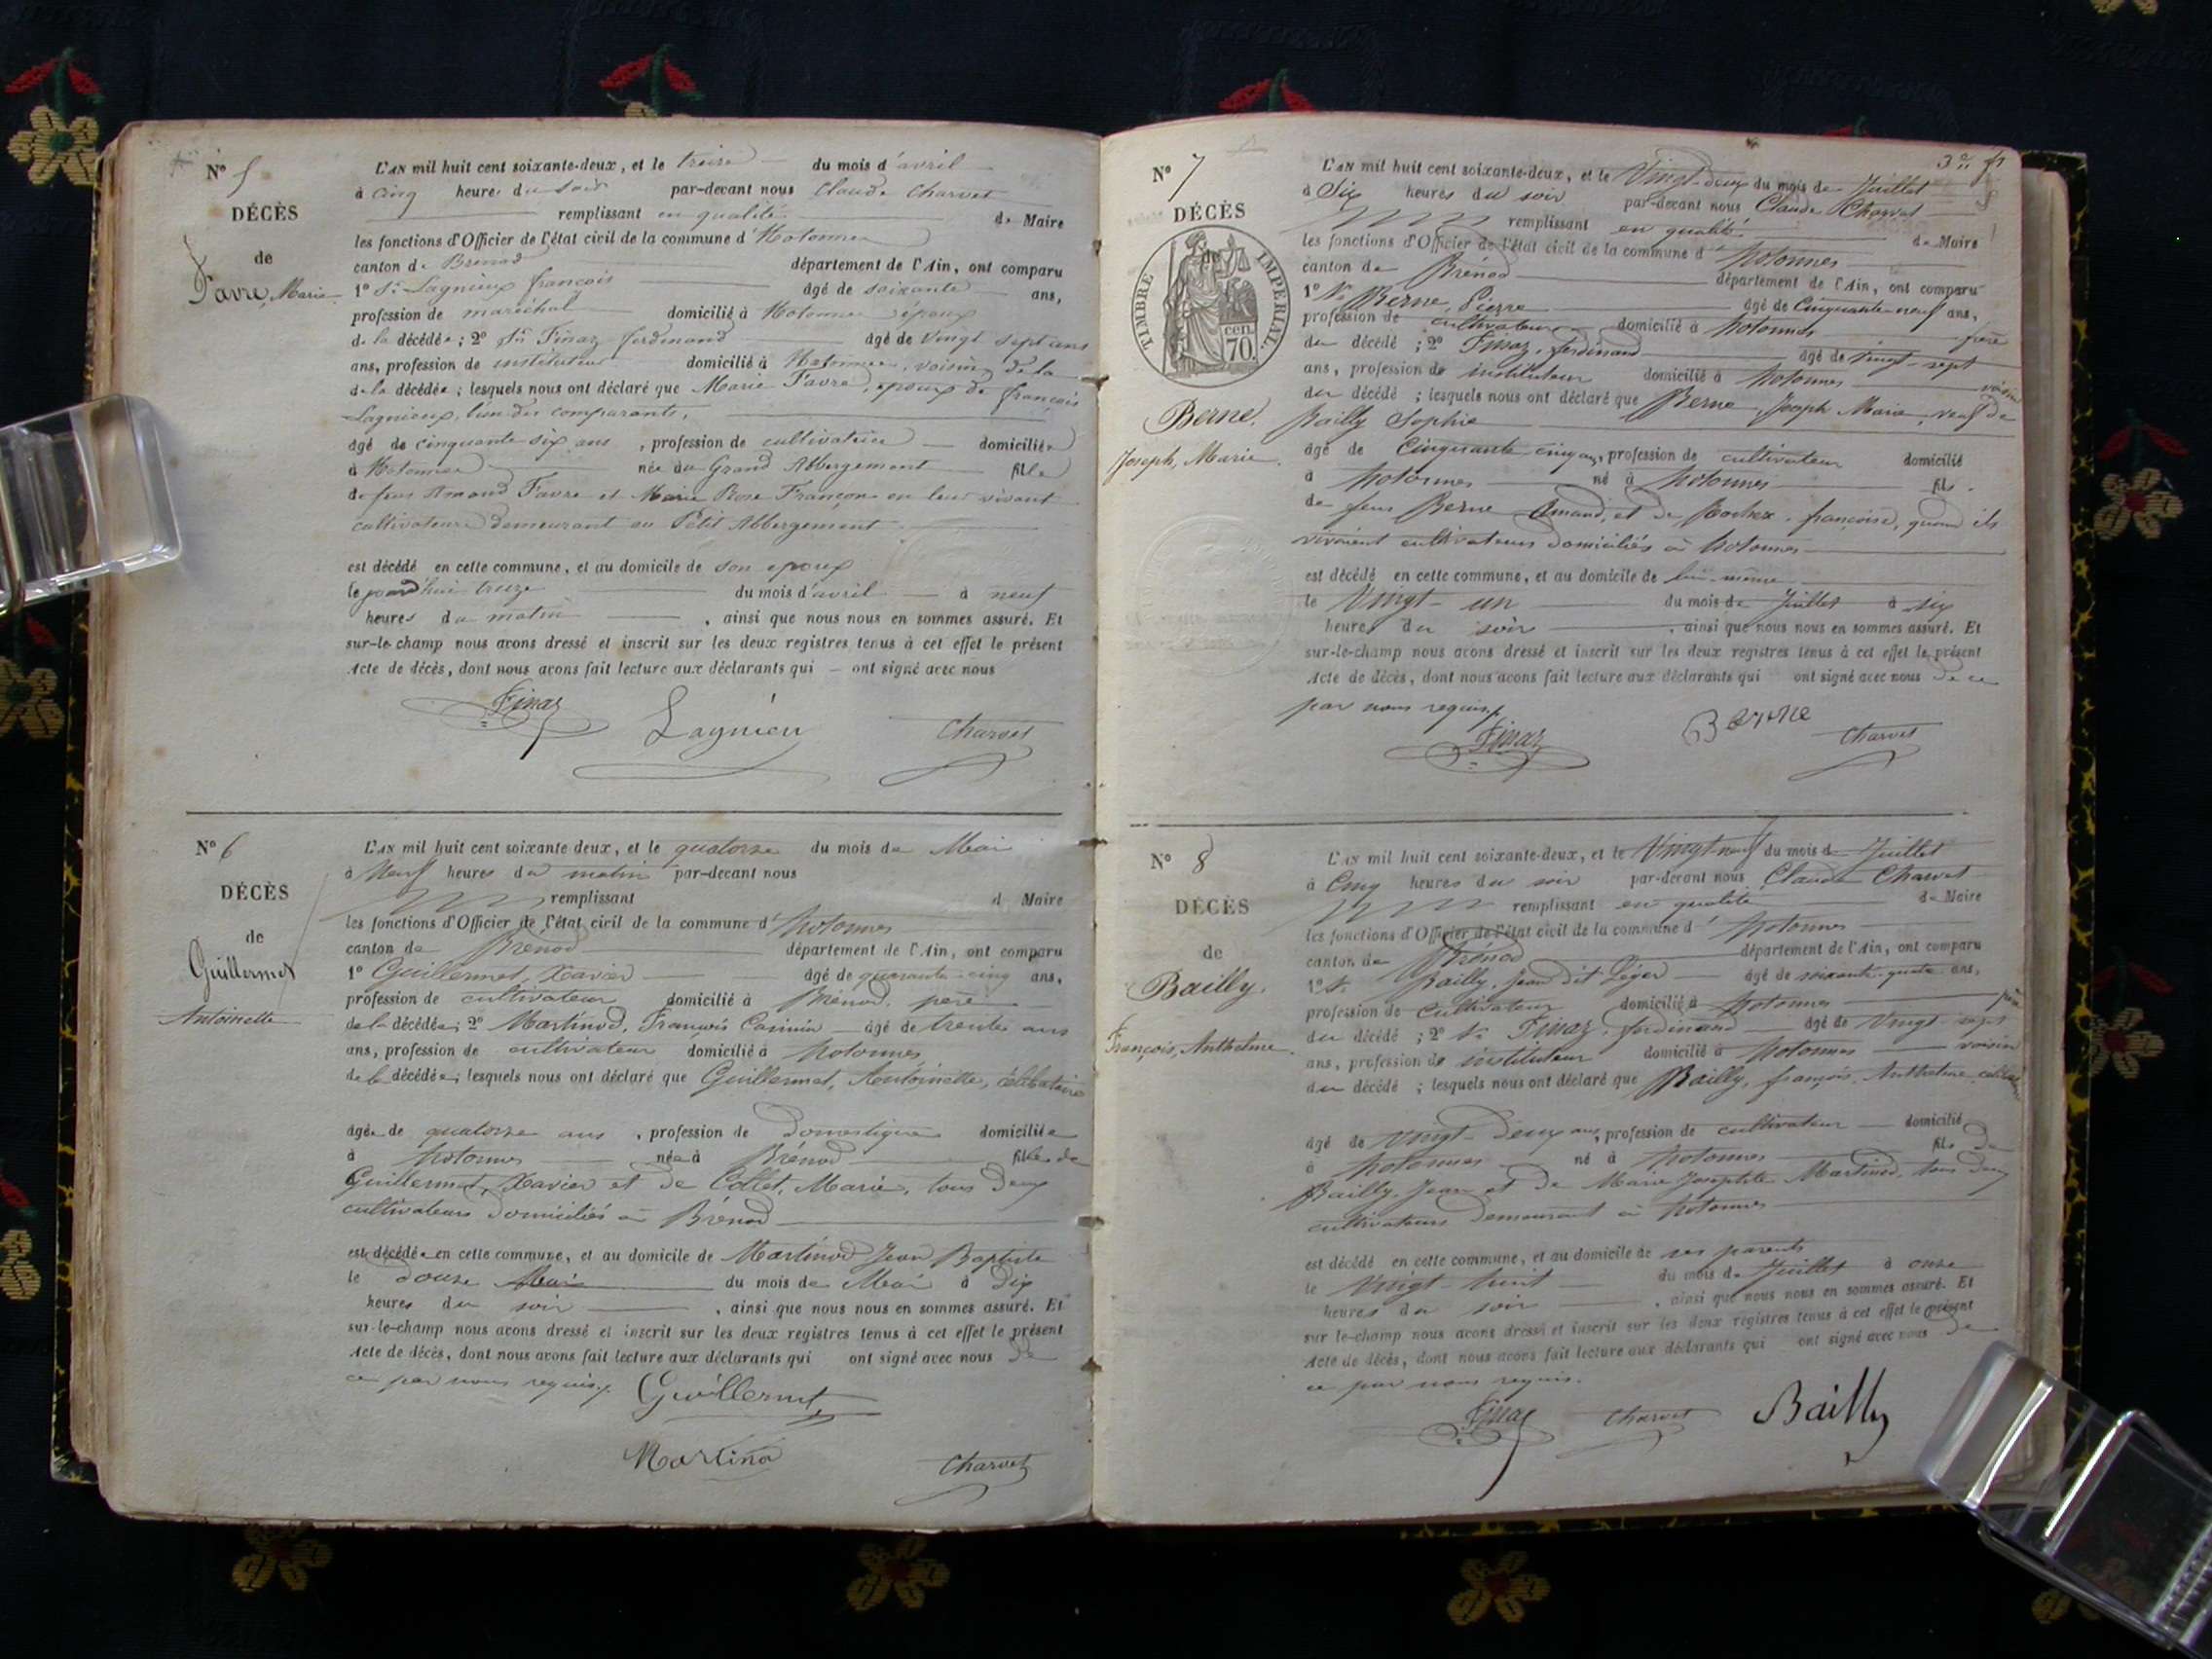 N° 5
DÉCÈS
de
Favre, Marie
L'AN mil huit cent soixante-deux, et le treize du mois d'avril
à cinq heures du soir par-devant nous Claude Charvet
remplissant en qualité de Maire
les fonctions d'Officier de l'état civil de la commune d'Hotonnes
canton de Brénod département de l'Ain, ont comparu
1° Sr Lagnieux françois âgé de soixante ans,
profession de maréchal domicilié à Hotonnes époux
de la décédée ; 2° Sr Finaz ferdinand âgé de vingt sept ans
ans, profession de instituteur domicilié à Hotonnes, voisin de la
de la décédée ; lesquels nous ont déclaré que Marie Favre, épouse de françois
Lagnieux, l'un des comparants,
âgé de cinquante six ans, profession de cultivatrice domiciliée
à Hotonnes née au Grand Abbergement fille
de feus Amand Favre et Marie Rose Françon en leur vivant
cultivateurs demeurant au Petit Abbergement
est décédé en cette commune, et au domicile de son époux
le jourd'hui treize du mois d'avril à neuf
heures du matin, ainsi que nous nous en sommes assuré. Et
sur-le-champ nous avons dressé et inscrit sur les deux registres tenus à cet effet le présent
Acte de décès, dont nous avons fait lecture aux déclarants qui ont signé avec nous
Finaz Lagnieu Charvet
N° 6
DÉCÈS
de
Guillermet
Antoinette
L'AN mil huit cent soixante-deux, et le quatorze du mois de Mai
à Neuf heures du matin par-devant nous
remplissant d Maire
les fonctions d'Officier de l'état civil de la commune d'Hotonnes
canton de Brénod département de l'Ain, ont comparu
1° Guillermet, Xavier âgé de quarante-cinq ans,
profession de cultivateur domicilié à Brénod, père
de la décédée; 2° Martinod, François Casimir âgé de trente ans
ans, profession de cultivateur domicilié à Hotonnes
de la décédée; lesquels nous ont déclaré que Guillermet, Antoinette, célibataire
âgée de quatorze ans, profession de Domestique domiciliée
à Hotonnes née à Brénod fille de
Guillermet, Xavier et de Collet, Marie, tous deux
cultivateurs domiciliés à Brénod
est décédée en cette commune, et au domicile de Martinod Jean Baptiste
le douze Mai du mois de Mai à dix
heures du soir, ainsi que nous nous en sommes assuré. Et
sur-le-champ nous avons dressé et inscrit sur les deux registres tenus à cet effet le présent
Acte de décès, dont nous avons fait lecture aux déclarants qui ont signé avec nous de
ce par nous requis.
Guillermet
Martinod Charvet
3e
N° 7
DÉCÈS
de
TIMBRE IMPÉRIAL.
cen.
70.
Berne,
Joseph, Marie
L'AN mil huit cent soixante-deux, et le Vingt-deux du mois de Juillet
à Six heures du soir par-devant nous Claude Charvet
remplissant en qualité de Maire
les fonctions d'Officier de l'état civil de la commune d'Hotonnes
canton de Brénod département de l'Ain, ont comparu
1° Sr Berne, Pierre âgé de Cinquante-neuf ans,
profession de cultivateur domicilié à Hotonnes frère
du décédé ; 2° Finaz, ferdinand âgé de vingt-sept
ans, profession de instituteur domicilié à Hotonnes voisin
du décédé ; lesquels nous ont déclaré que Berne, Joseph Marie, veuf de
Bailly Sophie
âgé de Cinquante cinq ans, profession de cultivateur domicilié
à Hotonnes né à Hotonnes fils
de feus Berne Amand, et de Rochex, françoise, quand ils
vivaient cultivateurs domiciliés à Hotonnes
est décédé en cette commune, et au domicile de lui-même
le Vingt-un du mois de Juillet à six
heures du soir, ainsi que nous nous en sommes assuré. Et
sur-le-champ nous avons dressé et inscrit sur les deux registres tenus à cet effet le présent
Acte de décès, dont nous avons fait lecture aux déclarants qui ont signé avec nous de ce
par nous requis.
Finaz Berne Charvet
N° 8
DÉCÈS
de
Bailly,
François, Anthelme
L'AN mil huit cent soixante-deux, et le Vingt-neuf du mois de Juillet
à Cinq heures du soir par-devant nous Claude Charvet
remplissant en qualité de Maire
les fonctions d'Officier de l'état civil de la commune d'Hotonnes
canton de Brénod département de l'Ain, ont comparu
1° Sr Bailly, Jean dit Léger âgé de soixante-quatre ans,
profession de cultivateur domicilié à Hotonnes père
du décédé ; 2° Sr Finaz, ferdinand âgé de Vingt-sept
ans, profession de instituteur domicilié à Hotonnes voisin
du décédé ; lesquels nous ont déclaré que Bailly, françois, Anthelme, célibataire
âgé de vingt-deux ans, profession de cultivateur domicilié
à Hotonnes né à Hotonnes fils de
Bailly, Jean et de Marie Josephte Martinod, tous deux
cultivateurs demeurant à Hotonnes
est décédé en cette commune, et au domicile de ses parents
le Vingt-huit du mois de Juillet à onze
heures du soir, ainsi que nous nous en sommes assuré. Et
sur-le-champ nous avons dressé et inscrit sur les deux registres tenus à cet effet le présent
Acte de décès, dont nous avons fait lecture aux déclarants qui ont signé avec nous de
ce par nous requis.
Finaz Charvet Bailly